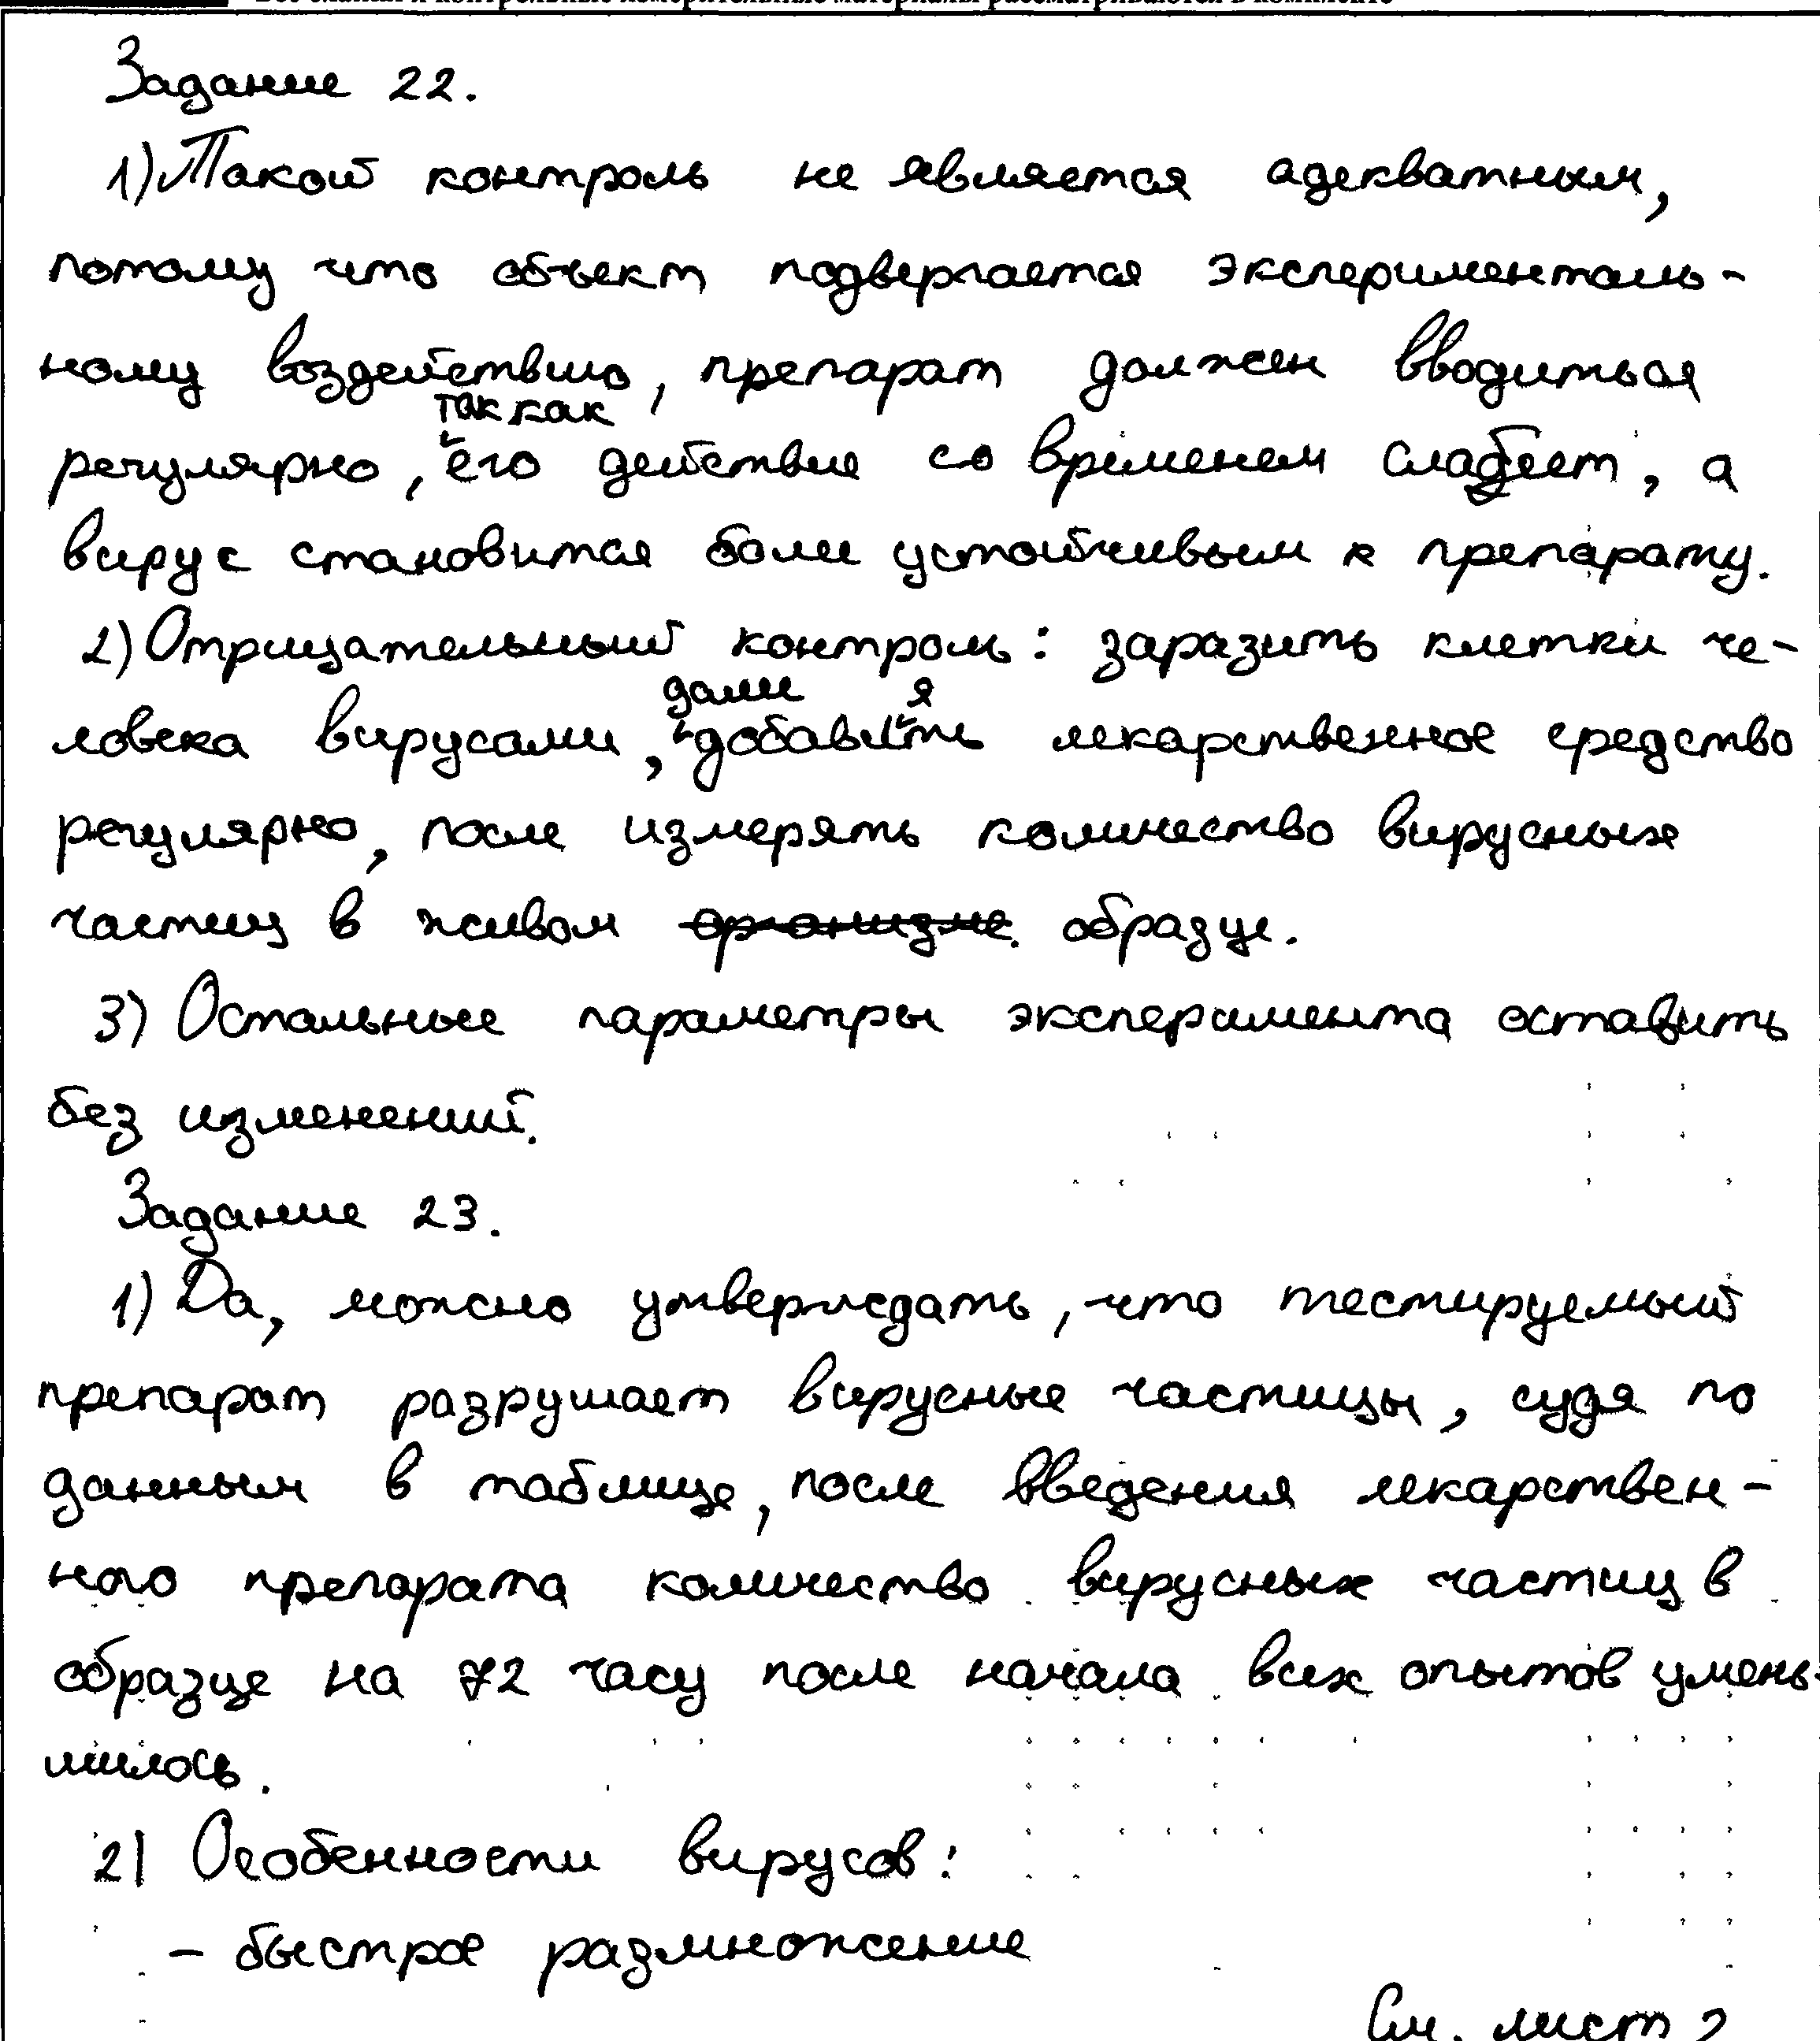 Все бланки и контрольные измерительные материалы рассматриваются в комплекте
Задание 22.
1) Такой контроль не является адекватным,
потому что объект подвергается эксперименталь-
ному воздействию, препарат должен вводиться
так как
регулярно, его действие со временем слабеет, а
вирус становится более устойчивым к препарату.
2) Отрицательный контроль: заразить клетки че-
далее я
ловека вирусами, добавить лекарственное средство
регулярно, после измерять количество вирусных
частиц в живом организме. образце.
3) Остальные параметры эксперимента оставить
без изменений.
Задание 23.
1) Да, можно утверждать, что тестируемый
препарат разрушает вирусные частицы, судя по
данным в таблице, после введения лекарствен-
ного препарата количество вирусных частиц в
образце на 72 часу после начала всех опытов умень-
шилось.
2) Особенности вирусов:
- быстрое размножение
См. лист 2